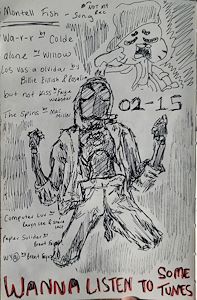 Montell Fish -
Song
Wa-r-r by Colde
alone by Willow
Los vas a olvidar by
Billie Eilish & Rosalía
but not kiss by Faye
Webster
The Spins by Mac
Miller
02-15
Computer Luv by
Paper Soldier by
Brent Faiyaz
WY@ by Brent Faiyaz
WANNA LISTEN TO SOME
TUNES